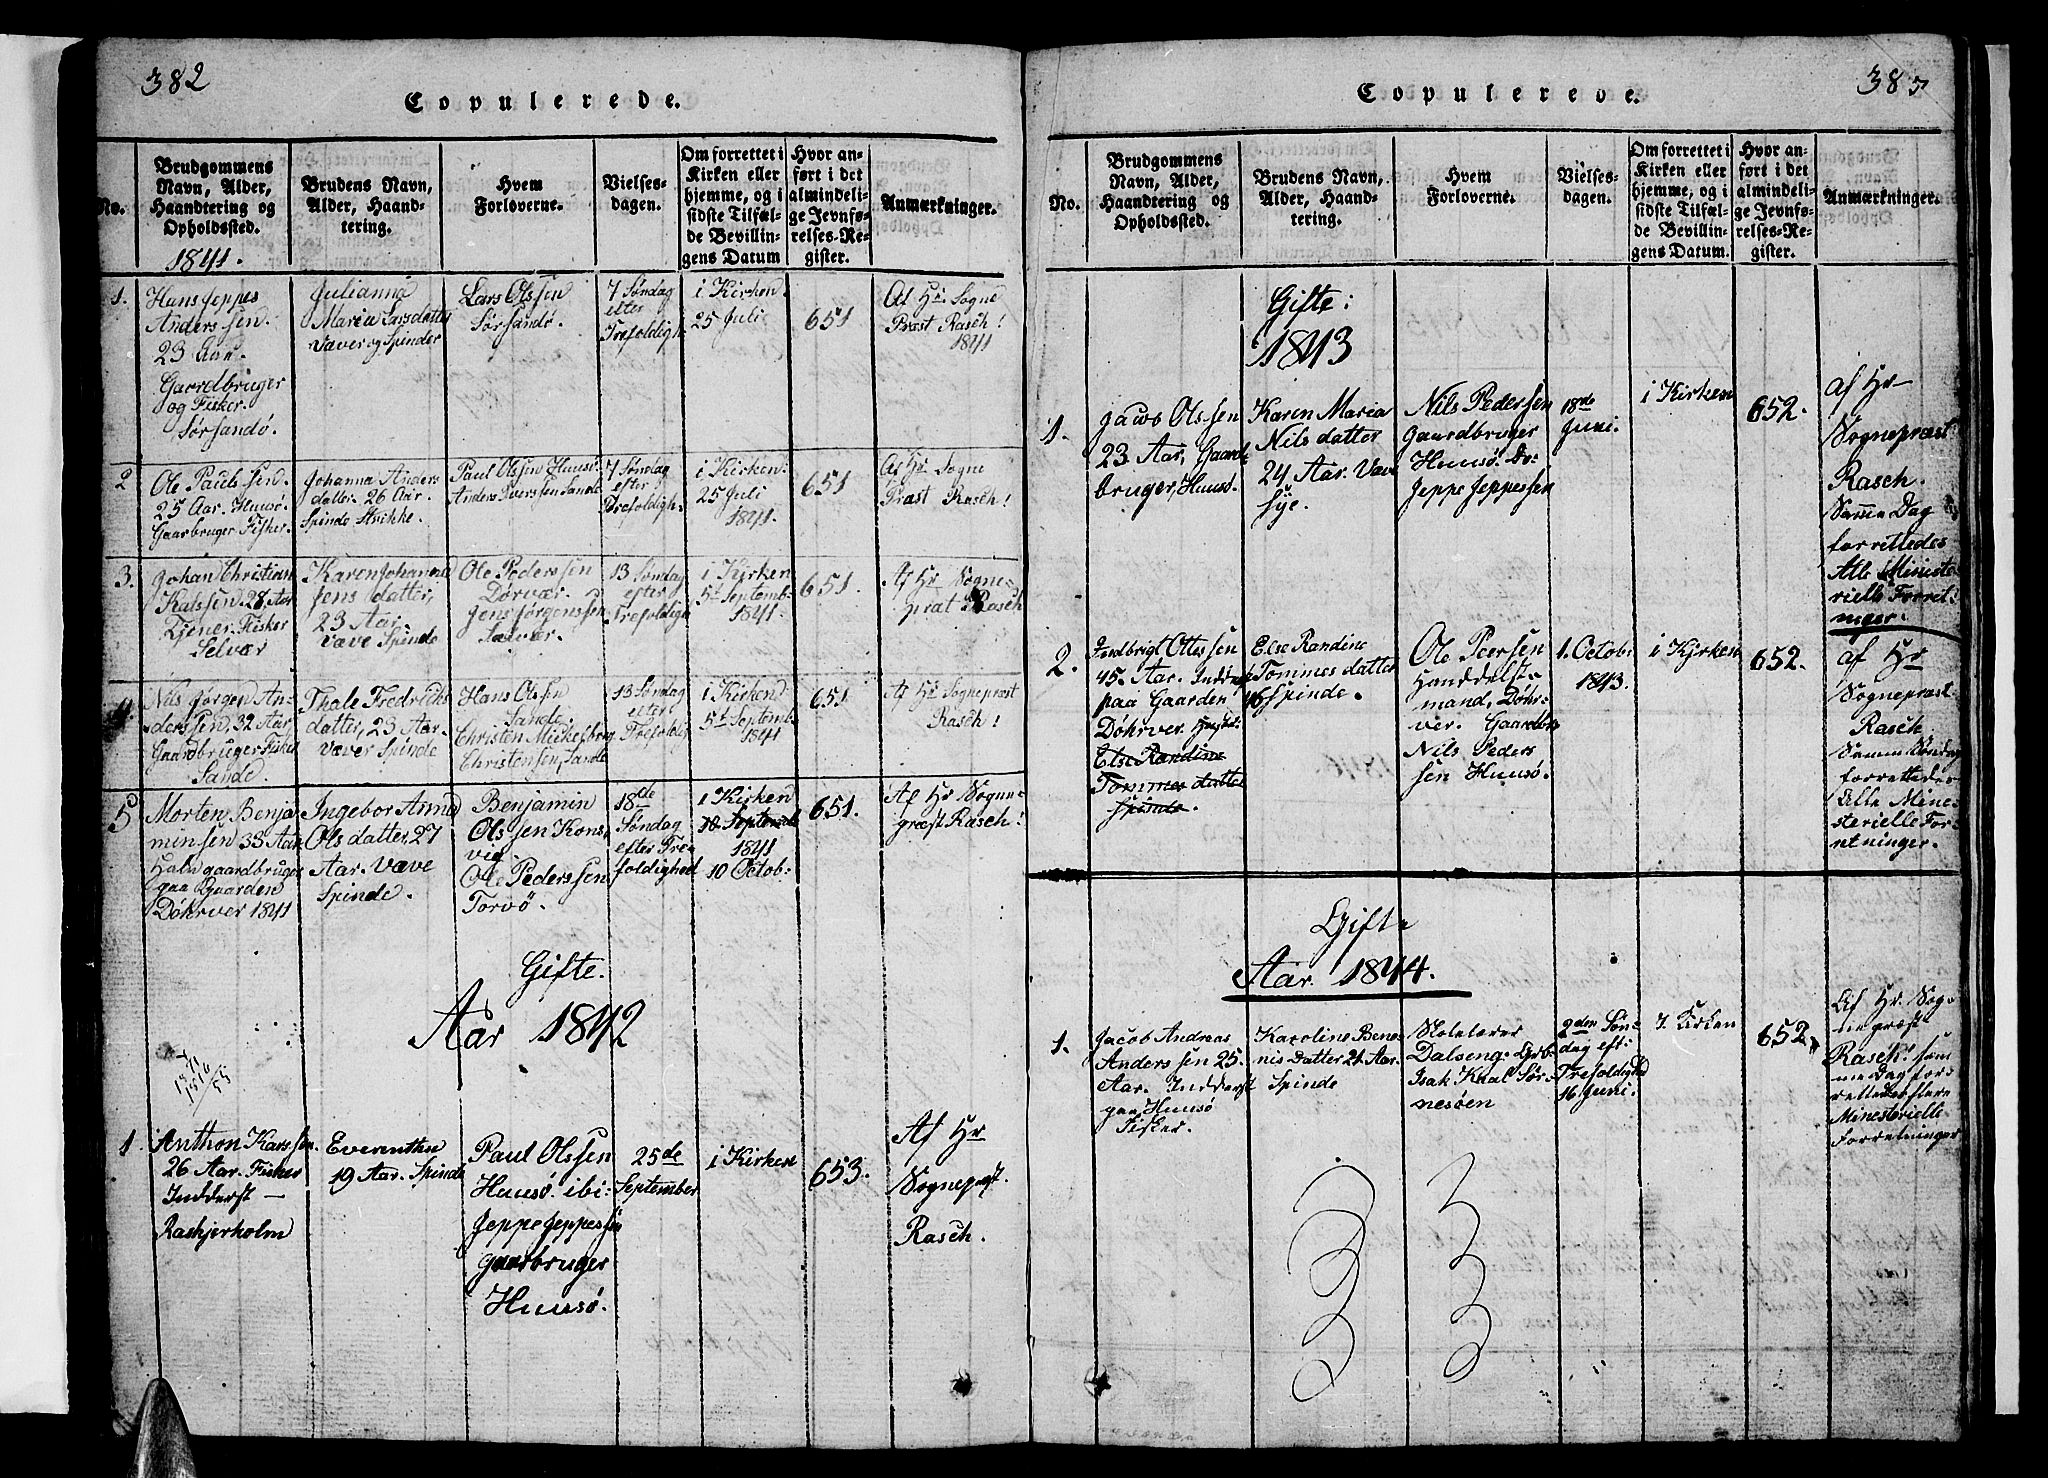 382
Copulerede.
No.
Brudgommens
Navn, Alder,
Haandtering og
Opholdssted.
1841.
Brudens Navn,
Alder, Haand-
tering.
Hvem
Forloverne.
Vielses-
dagen.
Om forrettet i
Kirken eller
hjemme, og i
sidste Tilfæl-
de Bevillin-
gens Datum
Hvor an-
ført i det
almindeli-
ge Jevnfø-
relses-Re-
gister.
Anmærkninger.
1.
Hans Jeppes
Anderssen.
23 Aar.
Gaardbruger
og Fisker.
Sørsandø.
Julianna
Maria Larsdatter
Væver og Spinder
Lars Olssen
Sørsandø.
7 Søndag
efter
Trefoldigh
i Kirken.
25 Juli
651
Af Hr. Sogne
Præst Rasch!
1841
2
Ole Paulssen.
25 Aar. Huusø.
Gaarbruger Fisker
Johanna Anders
datter. 26 Aar.
Spinde Strikke.
Paul Olssen Huusø
Anders Iverssen Sande
7 Søndag
efter
Trefoldigh.
i Kirken.
25 Juli
1841.
651
Af Hr Sogne
Præst Rasch!
3.
Johan Christian
Kalssen. 28 Aar
Tjener. Fisker
Selvær
Karen Johanna
Jens datter,
23 Aar.
væve Spinde
Ole Pederssen
Dørvær.
Jens Jørgenssen
Sælvær.
13 Søndag
efter
Trefoldigh
i Kirken
5te Septemb
1841.
651.
Af Hr Sogne-
præt Rasch
4.
Nils Jørgen An-
derssen, 32 Aar
Gaardbruger Fisker
Sande.
Thale Fredrichs
datter, 23 Aar.
Væver Spinde
Hans Olssen
Sande.
Christen Mickelborg
Christensen, Sande
13 Søndag
efter
Trefoldig
i Kirken.
5te Septemb.
1841
651
Af Hr Sogneprøst
Rasch!
5
Morten Benja
minsen 33 Aar
Halv gaardbruger
paa Gaarden
Døhrver 1841
Ingebor Anna
Ols datter, 27
Aar. Væve
Spinde.
Benjamin
Olssen Kons
vig
Ole Pederssen
Torvø.
18de
Søndag
efter Tre
foldighed
i Kirken
10 Septemb
1841
10 Octob:
651.
Af Hr Sogne-
præst Rasch!
Gifte.
Aar 1842
1
Anthon Karssen
26 Aar. Fisker
Indderst —
Raskjerholm
Everenthen
19 Aar. Spinde
Paul Olssen
Huusø. ibi:
Jeppe Jeppessen
gaarbruger
Huusø.
25de
September
i Kirken
653.
Af Hr
Sogneprøst.
Rasch.
383
Copulerede.
No.
Brudgommens
Navn, Alder,
Haandtering og
Opholdssted.
Brudens Navn,
Alder, Haand-
tering.
Hvem
Forloverne.
Vielses-
dagen.
Om forrettet i
Kirken eller
hjemme, og i
sidste Tilfæl-
de Bevillin-
gens Datum.
Hvor an-
ført i det
almindeli-
ge Jevnfø-
relses-Re-
gister.
Anmærkninger.
Gifte:
1843
1.
Jacob Olssen
23 Aar, Gaard-
bruger, Huusø.
Karen Maria
Nils datter
24 Aar. Væve
sye.
Nils Pederssen
Gaardbruger
Huusø. Do:
Jeppe Jeppessen
18de
Juni.
i Kirken
652.
af Hr
Sogneprøst
Rasch.
Samme Dag
forrettedes
Alle Ministe-
rielle Forret-
ninger.
2.
Fredbrigt Ottessen
45. Aar. Indderst
paa Gaarden
Døhrver
Else Randine
Tommes datter
Spinde.
Else Randine
Tommes datter
46 Spinde.
Ole Peersen
Handdels-
mand, Døhr-
ver. Gaardbr
Nils Peders
sen Huusø.
1. Octob:
1843.
i Kjrken
652.
af Hr
Sogneprøst
Rasch
Samme Søndag
forrettedes
Alle Mine-
sterielle For-
retninger.
Gifte
Aar 1844.
1.
Jacob Andreas
Anderssen 25.
Aar. Indderst
paa Huusø
Fisker.
Karoline Bene-
nis Datter 21. Aar.
Spinde
Skolelærer
Dalseng
Isak Kaal Sør-
nesøen
2den Søn-
dag eft:
Trefoldighed
16 Juni.
I. Kirken
652.
Af Hr. Sog-
nepræst
Rasch. sam
me Dag for-
rettedes flere
Minesterielle
Forretninger